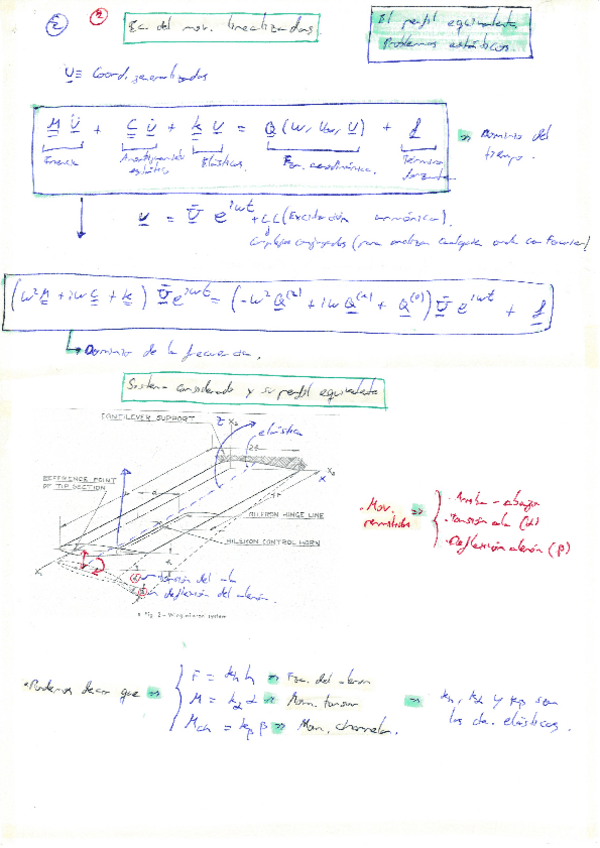 ② ②
Ec. del mov. linealizadas.
El perfil equivalente
Problemas estáticos.
U ≡ Coord. generalizadas
M Ü + C U̇ + k U = Q (w, U∞, U) + f ⇒ Dominio del tiempo.
Inercia Amortiguamiento Elásticos. Fza. aerodinámica. Término
U = Ū e^{iwt} + CC (Excitación armónica).
Complejos conjugados (para analizar cualquier onda con Fourier)
(w² M + iw C + k) Ū e^{iwt} = (-w² Q^{(2)} + iw Q^{(1)} + Q^{(0)}) Ū e^{iwt} + f
↳ Dominio de la frecuencia.
Sistema considerado y su perfil equivalente
CANTILEVER SUPPORT
Z X₃
elástica
REFERENCE POINT
OF TIP SECTION
X
AILERON HINGE LINE
AILERON CONTROL HORN
torsión del ala
deflexión del alerón.
Fig. 2 - Wing aileron system
• Mov. permitidos ⇒
· Arriba - abajo
· Torsión ala (α)
· Deflexión alerón (β)
• Podemos decir que ⇒
F = k_h h ⇒ Fza. del
M = k_α α ⇒ Mom. torsor
M_ch = k_β β ⇒ Mom. charnela.
⇒ k_h, k_α y k_β son
las cte. elásticas.